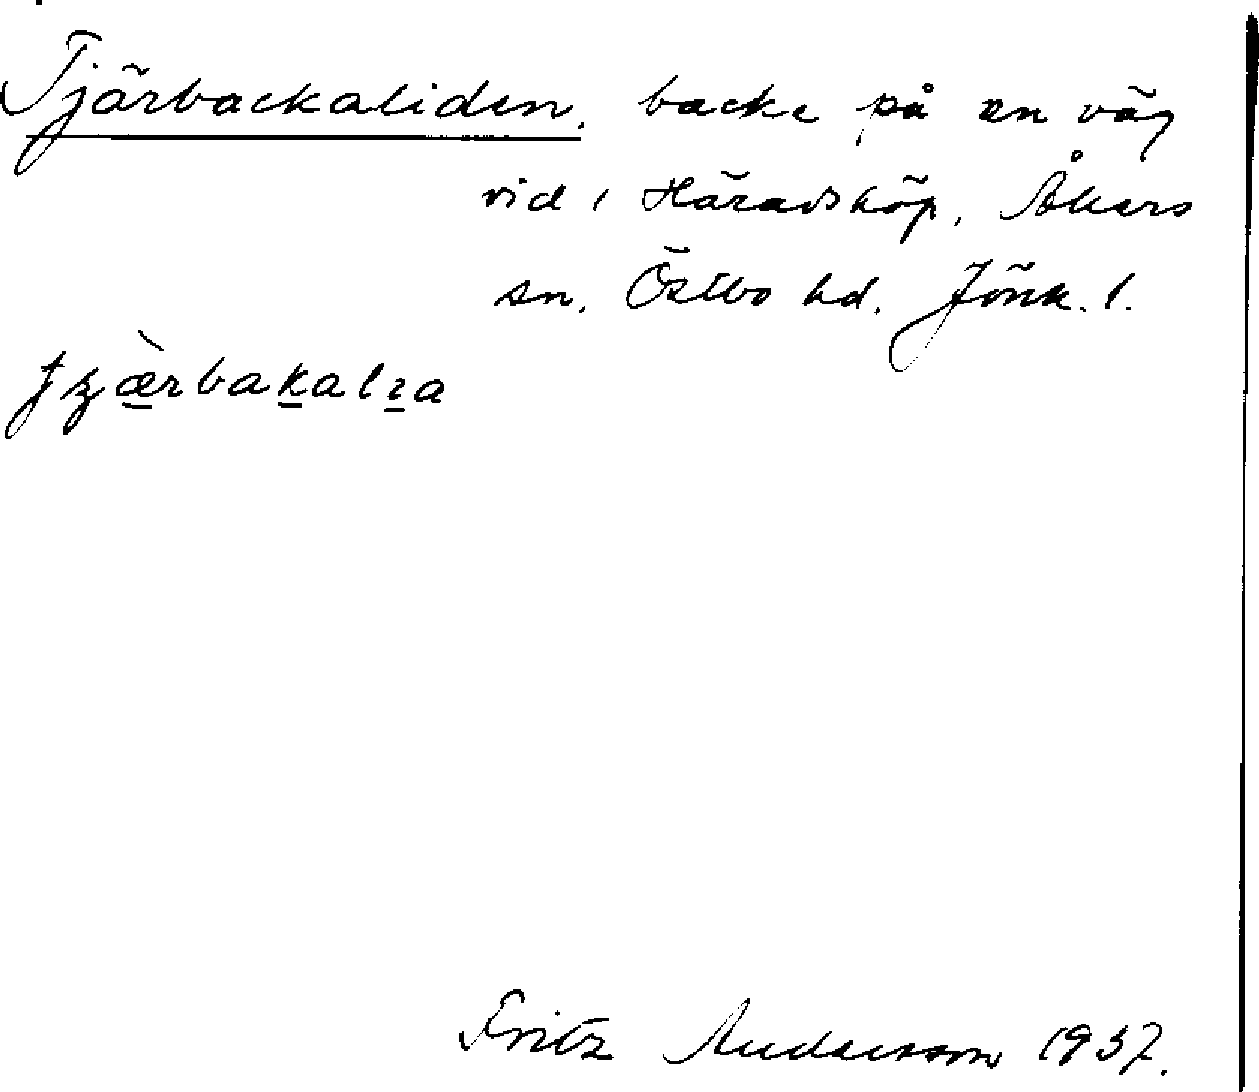 Tjärbackaliden, backe på en väg
vid i Häradsköp, Åkers
sn. Östbo hd. Jönk. l.
Fritz Andersson 1937.